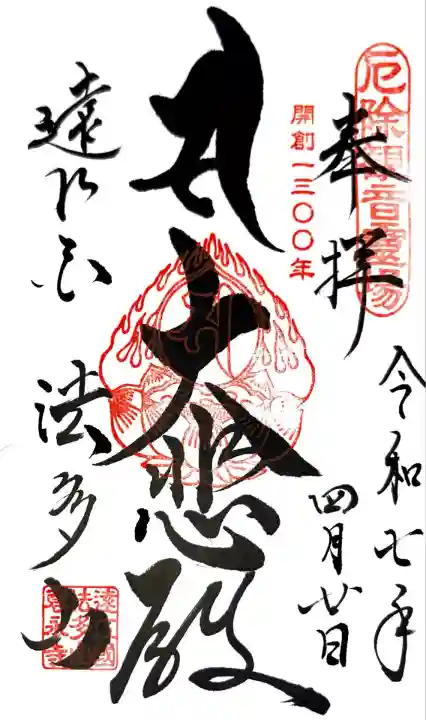 厄除観音霊場
奉拝
開創一三〇〇年
令和七年
四月廿日
大悲殿
遠江
法多山
遠江國
法多山
尊永寺